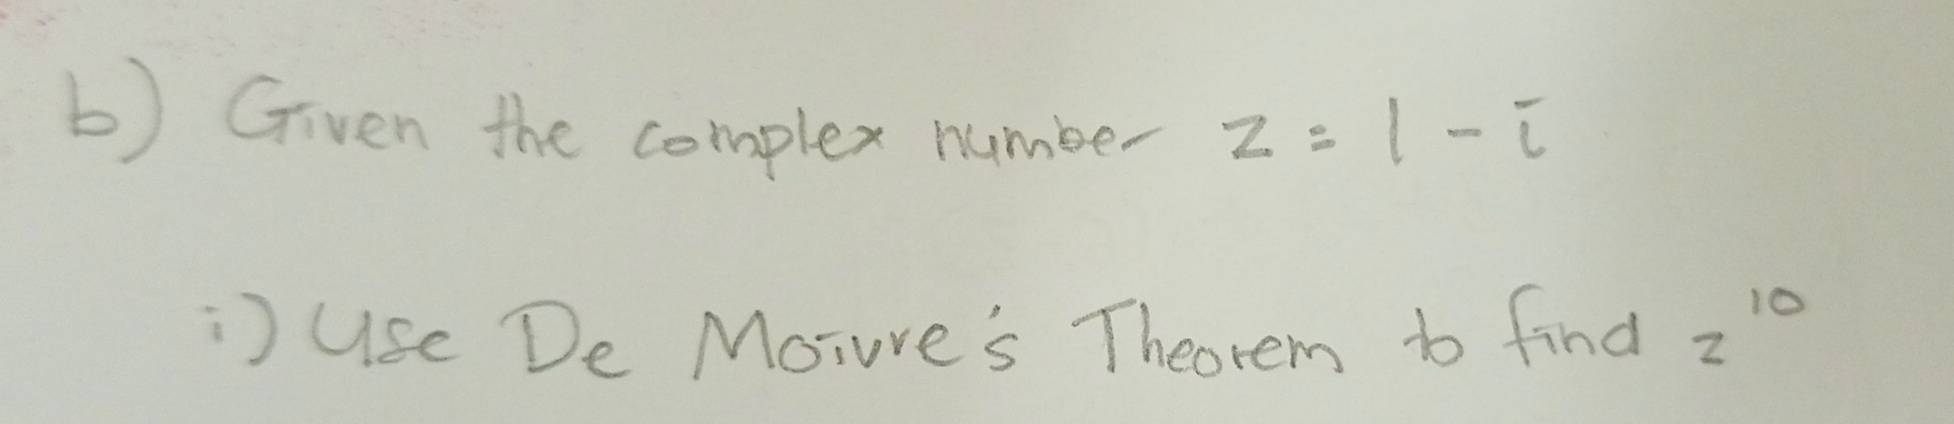 b) Given the complex number z = 1 - i
i) Use De Moivre's Theorem to find z¹⁰